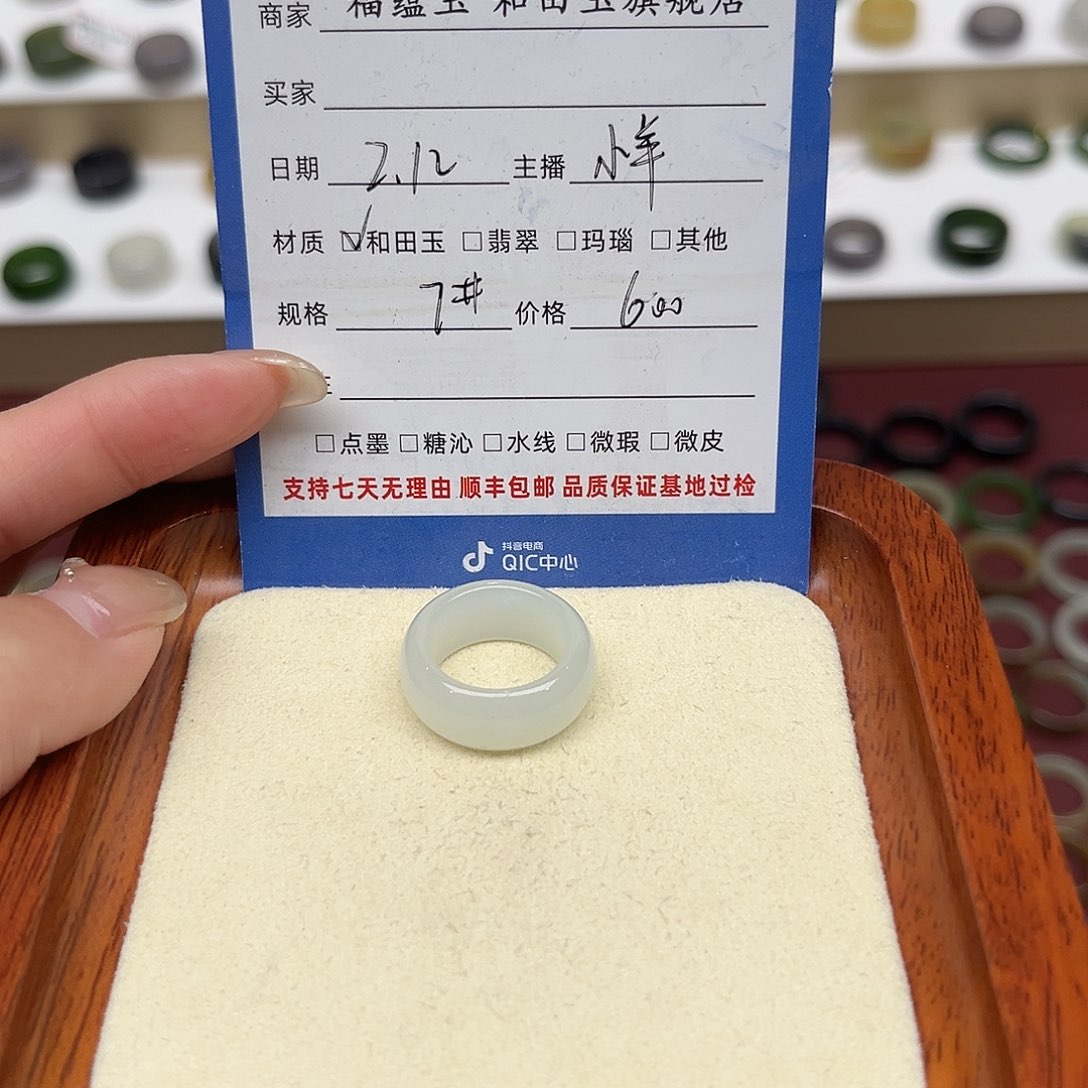 商家 福蕴玉 和田玉旗舰店
买家
日期 2.12 主播 小羊
材质 ☑和田玉 □翡翠 □玛瑙 □其他
规格 7# 价格 600
□点墨 □糖沁 □水线 □微瑕 □微皮
支持七天无理由 顺丰包邮 品质保证基地过检
抖音电商
QIC中心